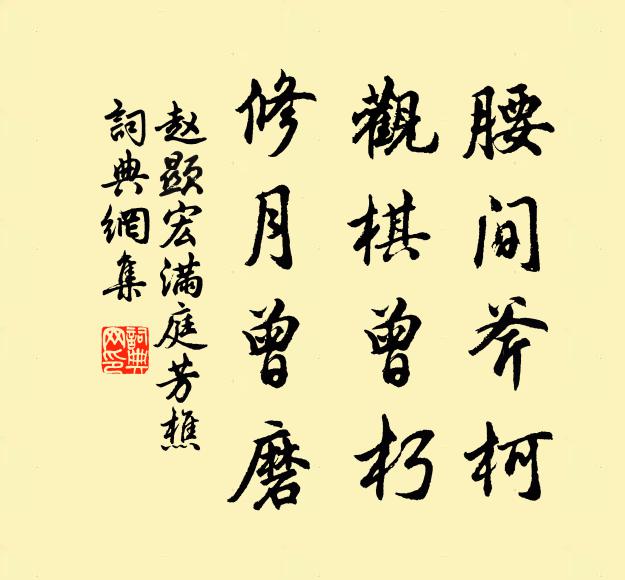 腰间斧柯
觀棋曾朽
修月曾磨
赵顯宏满庭芳樵
詞典網集
詞典
网印